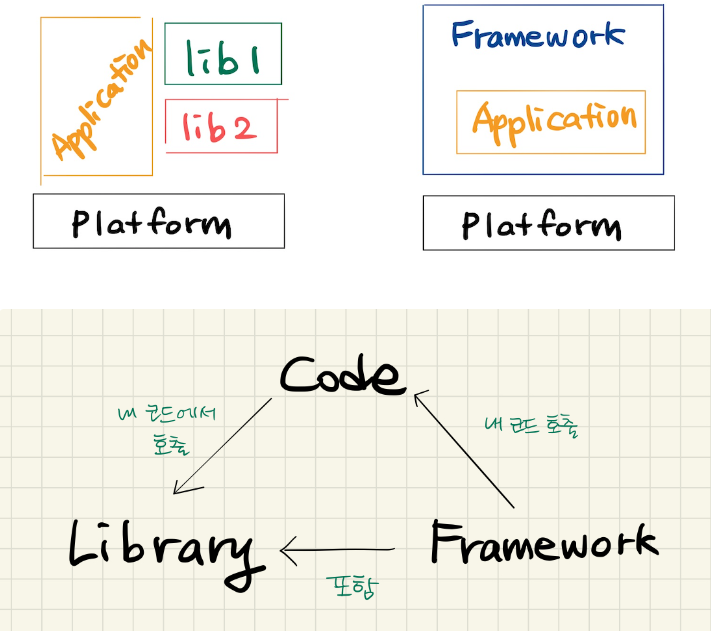 Application
lib1
lib2
Platform
Framework
Application
Platform
Code
내 코드에서
호출
내 코드 호출
Library
Framework
포함